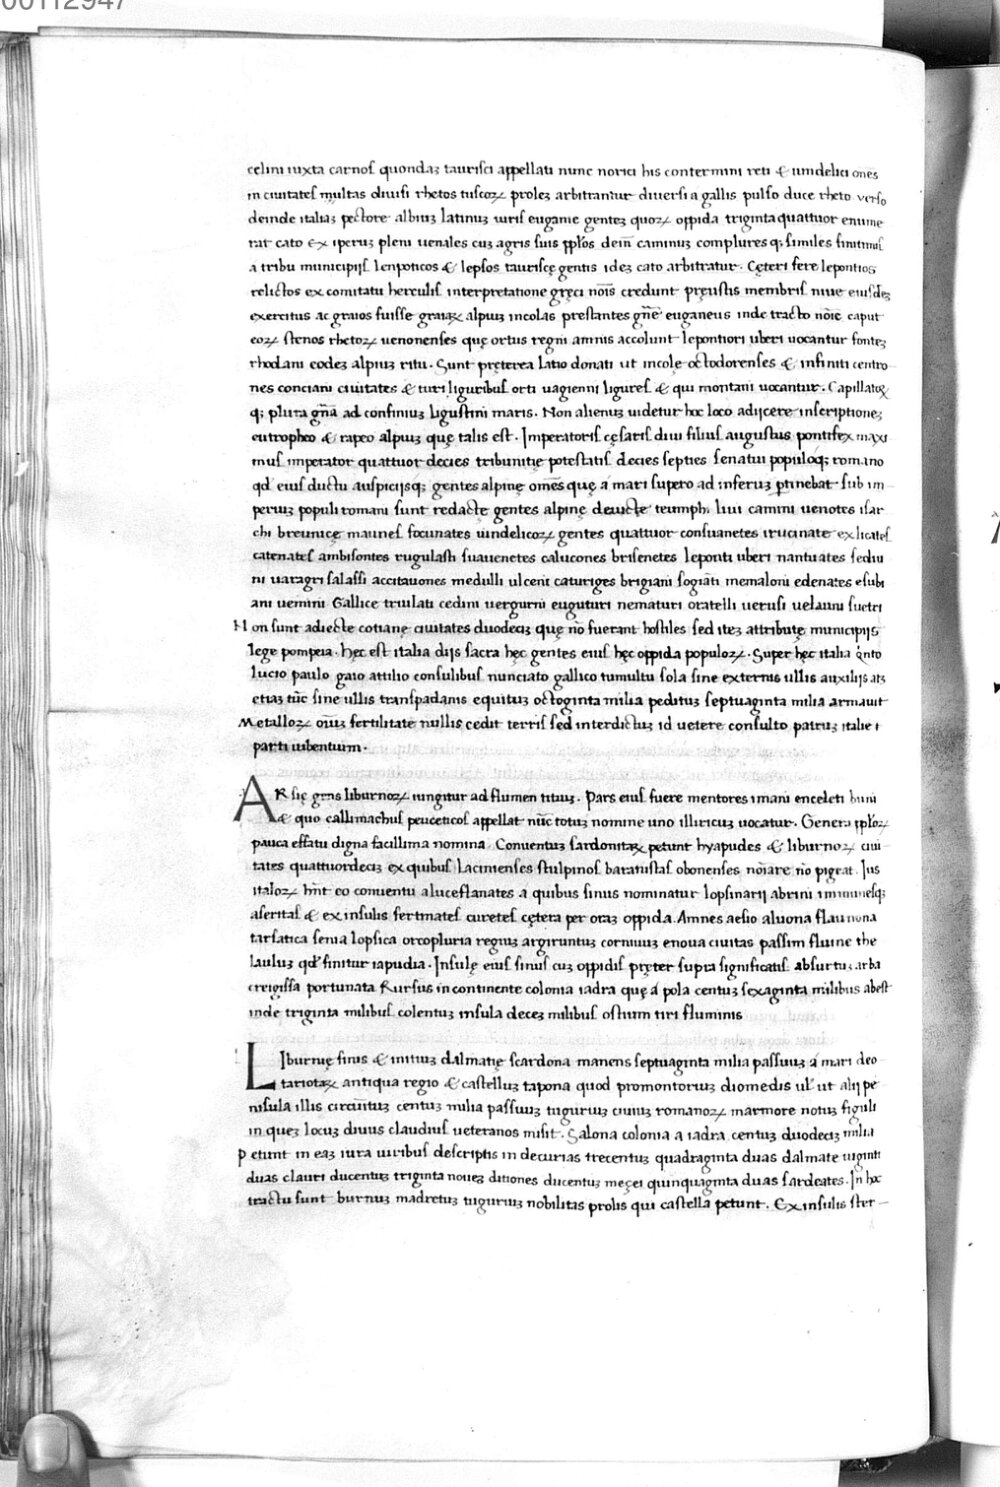 00112947
celini iuxta carnos quondaꝫ taurisci appellati nunc norici his contermini reti & uindelici ones
in ciuitates multas diuisi rhetos tuscoꝝ proleꝫ arbitrantur diuersi a gallis pulso duce rheto verso
deinde italiaꝫ pectore albiuꝫ latinuꝫ iuris euganie genteꝫ quoꝝ oppida triginta quattuor enume
rat cato ex iperuꝫ pleni uenales cuꝫ agris suis pp̱los dein̄ caminuꝫ complures qꝫ similes finitimis
a tribu municipijs lenponticos & lepsos taurisce̜ gentis ideꝫ cato arbitratur. Ce̜teri fere lepontios
relictos ex comitatu herculis interpretatione gre̜ci no̅is credunt pre̜ustis membris niue eiusdeꝫ
exercitus ac graios fuisse graiaꝝ alpiuꝫ incolas prestantes gn̅e euganeus inde tracto no̅ie caput
eoꝝ stenos rhetoꝝ uenonenses que̜ ortus regni amnis accolunt lepontiori uberi uocantur fonteꝫ
rhodani eodeꝫ alpiuꝫ ritu. Sunt pre̜terea latio donati ut incole̜ octodorenses & infiniti centro
nes conciani ciuitates & turi liguribus orti uagienni ligures & qui montani uocantur. Capillatoꝝ
qꝫ plura gn̅a ad confiniuꝫ ligustini maris. Non alienuꝫ uidetur hoc loco adijcere inscriptioneꝫ
eutropheo & rapeo alpiuꝫ que̜ talis est. Imperatoris ce̜saris diui filius augustus pontifex maxi
mus imperator quattuor decies tribunitie̜ potestatis decies septies senatui populoqꝫ romano
qd eius ductu auspicijsqꝫ gentes alpine̜ om̅es que̜ a mari supero ad inferuꝫ ꝑtinebat sub im
periuꝫ populi romani sunt redacte̜ gentes alpine̜ deuicte̜ teumph. liui camini uenotes isar
chi breunice̜ maunes focunates uindelicoꝝ gentes quattuor consuanetes irucinate exlicates
catenates ambisontes rugulasti suauenetes calucones brisenetes leponti uberi nantuates sediu
ni uaragri salassi accitauones medulli ulceni caturiges brigiani sogiati memaloni edenates esubi
ani uemini Gallice triulati cedini uergurni euguturi nematuri oratelli uerusi uelauni suetri
Non sunt adiecte̜ cotiane̜ ciuitates duodeciꝫ que̜ no̅ fuerant hostiles sed iteꝫ attribute̜ municipijs
lege pompeia. he̜c est italia dijs sacra he̜c gentes eius he̜c oppida populoꝝ. Super he̜c italia qnto
lucio paulo gaio attilio consulibus nunciato gallico tumultu sola sine externis ullis auxilijs atꝫ
etiaꝫ tu̅c sine ullis transpadanis equituꝫ octoginta milia pedituꝫ septuaginta milia armauit
Metalloꝝ om̅iuꝫ fertilitate nullis cedit terris sed interdictuꝫ id uetere consulto patruꝫ italie i
parti iubentuim.
ARsie̜ gens liburnoꝝ iungitur ad flumen titiuꝫ. Pars eius fuere mentores imani enceleti buni
& quo callimachus peuceticos appellat nu̅c totuꝫ nomine uno illiricuꝫ uocatur. Genera pp̱loꝝ
pauca effatu digna facillima nomina. Conuentuꝫ sardonitaꝝ petunt hyapudes & liburnoꝝ ciui
tates quattuordeciꝫ ex quibus lacinienses stulpinos baratustas obonenses no̅iare no̅ pigeat. Ius
italoꝝ hn̅t eo conuentu aluceflanates a quibus sinus nominatur lopsinarij abrini imunnesqꝫ
aseritas & ex insulis fertinates curetes ce̜tera per oraꝫ oppida. Amnes aesio aluona flaunona
tarsatica senia lopsica orcopluria regiuꝫ argiruntuꝫ corniuuꝫ enoua ciuitas passim fluine the
lauiuꝫ qd finitur iapudia. Insule̜ eius sinus cuꝫ oppidis pre̜ter supra significatis absurtuꝫ arba
creigissa portunata Rursus in continente colonia iadra que̜ a pola centuꝫ sexaginta milibus abest
inde triginta milibus colentuꝫ insula deceꝫ milibus ostium tiri fluminis
LIburnie̜ finis & initiuꝫ dalmatie̜ scardona manens septuaginta milia passuuꝫ a mari deo
tariotaꝝ antiqua regio & castelluꝫ tapona quod promontoriuꝫ diomedis ul̅ ut alij pe
nisula illis circu̅ituꝫ centuꝫ milia passuuꝫ tuguriuꝫ ciuiuꝫ romanoꝝ marmore notuꝫ siguli
in queꝫ locuꝫ diuus claudius ueteranos misit. Salona colonia a iadra centuꝫ duodeciꝫ milia
Petunt in eaꝫ iura uiribus descriptis in decurias trecentuꝫ quadraginta duas dalmate uiginti
duas clauri ducentuꝫ triginta noueꝫ ditiones ducentuꝫ mecei quinquaginta duas sardeates. In hoc
tractu sunt burnuꝫ madretuꝫ tuguriuꝫ nobilitas prolis qui castella petunt. Ex insulis ster